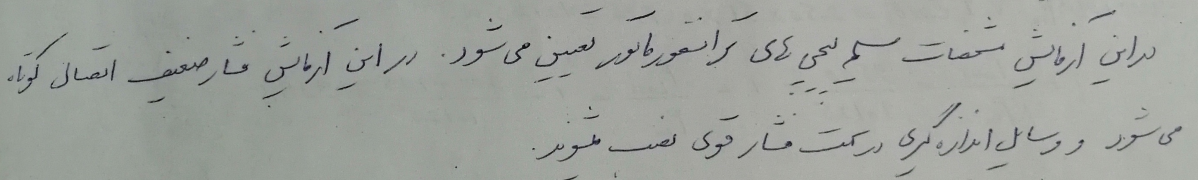 در این آزمایش مشخصات سیم پیچی های ترانسفورماتور تعیین می شود. در این آزمایش فشار ضعیف اتصال کوتاه
می شود و وسایل اندازه گیری در سمت فشار قوی نصب میشوند.